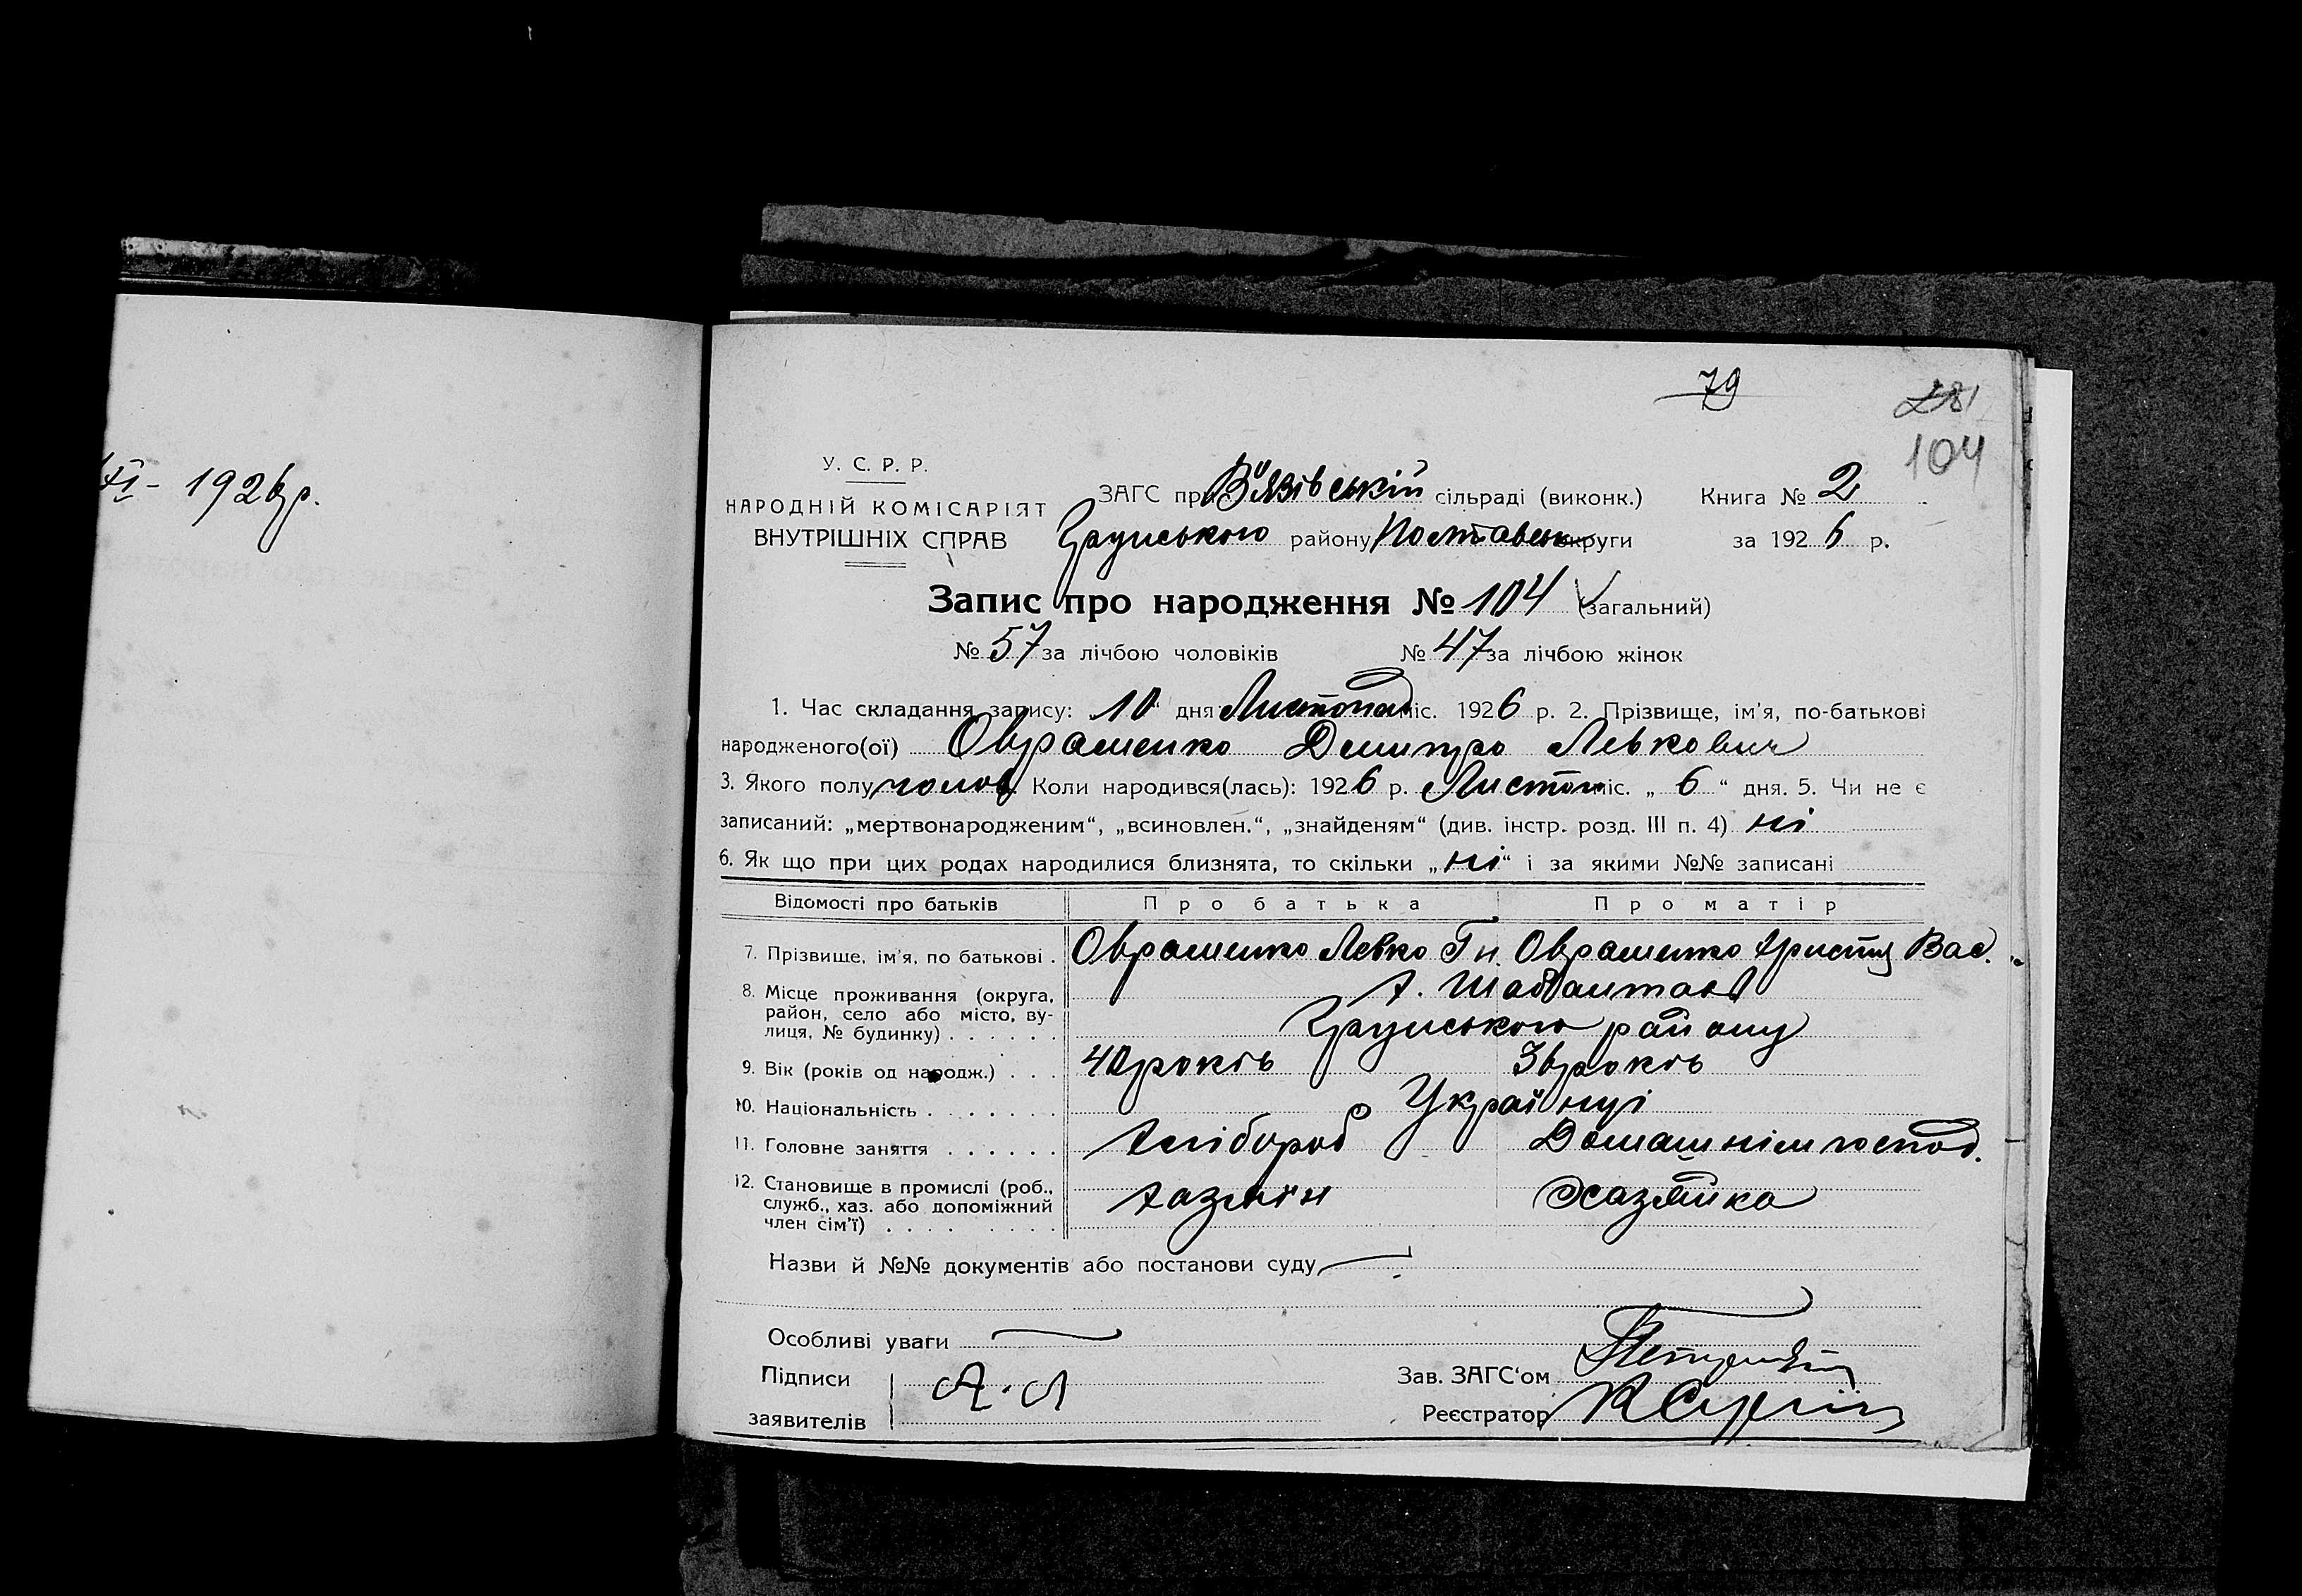 79
281
104
XI - 1926 р.
У. С. Р. Р.
НАРОДНІЙ КОМІСАРІЯТ
ВНУТРІШНІХ СПРАВ
ЗАГС при В'язівській сільраді (виконк.) Книга № 2
Грунського району Полтавськ округи за 1926 р.
Запис про народження № 104 (загальний)
№ 57 за лічбою чоловіків № 47 за лічбою жінок
1. Час складання запису: „10“ дня Листопад міс. 1926 р. 2. Прізвище, ім'я, по-батькові
народженого(ої) Овраменко Демитро Левкович
3. Якого полу чолов. Коли народився(лась): 1926 р. Листоп міс. „ 6 “ дня. 5. Чи не є
записаний: „мертвонародженим“, „всиновлен.“, „знайденям“ (див. інстр. розд. III п. 4) ні
6. Як що при цих родах народилися близнята, то скільки „ні“ і за якими №№ записані
Відомості про батьків Про батька Про матір
7. Прізвище, ім'я, по батькові . Овраменко Левко Гн. Овраменко Христя Вас.
8. Місце проживання (округа, район, село або місто, вулиця, № будинку) . . . . . .
Х.
Грунського району
9. Вік (років од народж.) . . . 40 років 36 років
10. Національність . . . . . . . Українці
11. Головне заняття . . . . . . Хлібороб Домашнім господ.
12. Становище в промислі (роб., служб., хаз. або допоміжний член сім'ї) . . . . . . . . Хазяїн Хазяйка
Назви й №№ документів або постанови суду
Особливі уваги
Підписи
заявителів
Зав. ЗАГС'ом
Реєстратор